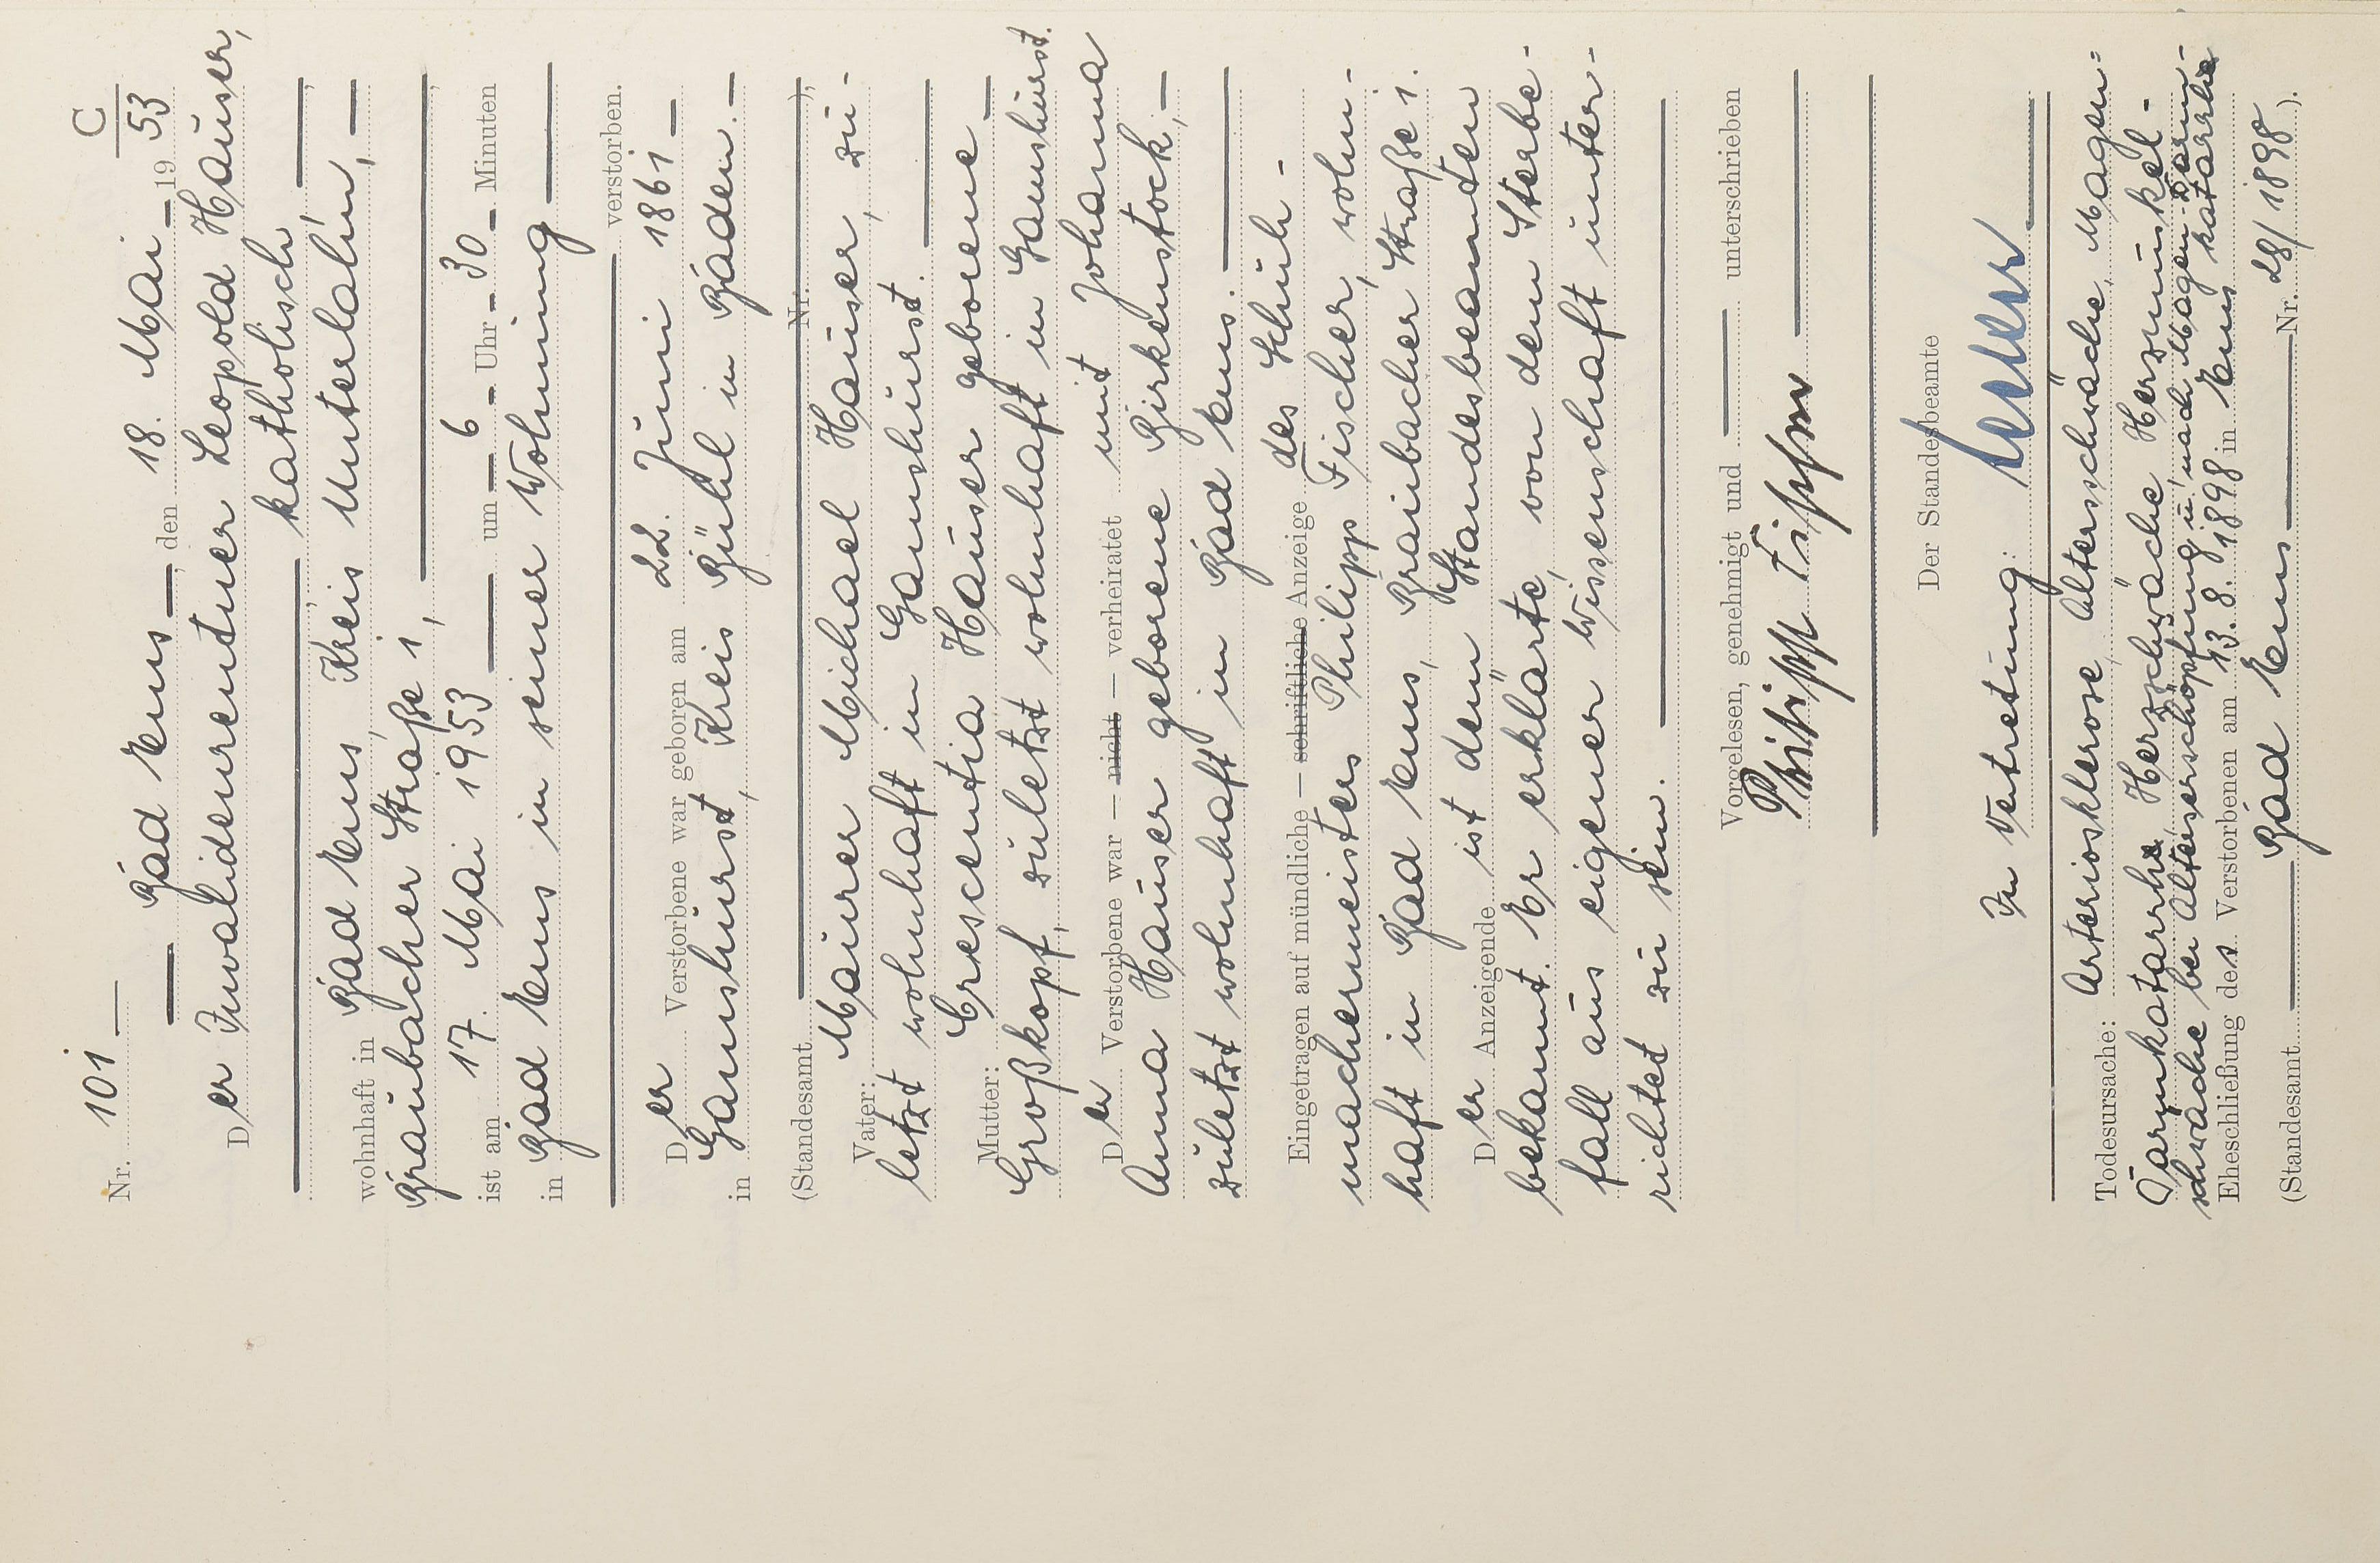 C
Nr. 101
53
Bad Ems, den 18. Mai 19
Der Invalidenrentner Leopold Hauser,
katholisch,
wohnhaft in Bad Ems, Kreis Unterlahn,
Graubacher Straße 1,
ist am 17. Mai 1953 um 6 Uhr 30 Minuten
in Bad Ems in seiner Wohnung
verstorben.
Der Verstorbene war geboren am 22. Juni 1861
in Gamshurst, Kreis Bühl in Baden.
(Standesamt Nr. ),
Vater: Maurer Michael Hauser, zu-
letzt wohnhaft in Gamshurst.
Mutter: Crescentia Hauser geborene
Großkopf, zuletzt wohnhaft in Gamshurst.
Der Verstorbene war — nicht — verheiratet mit Johanna
Anna Hauser geborene Birkenstock,
zuletzt wohnhaft in Bad Ems.
Eingetragen auf mündliche — schriftliche Anzeige des Schuh-
machermeisters Philipp Fischer, wohn-
haft in Bad Ems, Braubacher Straße 1.
Der Anzeigende ist dem Standesbeamten
bekannt. Er erklärte, von dem Sterbe-
fall aus eigener Wissenschaft unter-
richtet zu sein.
Vorgelesen, genehmigt und unterschrieben
Philipp Fischer
Der Standesbeamte
In Vertretung:
Todesursache: Arteriosklerose, Altersschwäche, Magen=
Darmkatarrhe, Herzschwäche, Herzmuskel-
schwäche bei Alterserschöpfung u. nach Magen-Darm-
katarrhe
Eheschließung des Verstorbenen am 13. 8. 1898 in Ems
(Standesamt Bad Ems Nr. 28/1898).